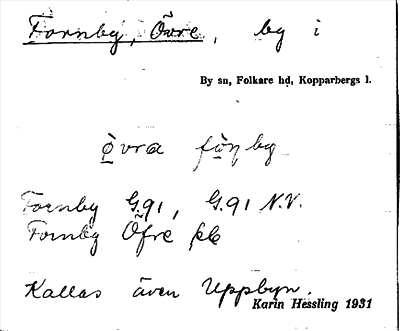 Fornby, Övre, by i
By sn, Folkare hd, Kopparbergs l.
òvra fàṇby
Fornby G.91, G.91 N.V.
Fornby Öfre kb
Kallas även Uppbyn.
Karin Hessling 1931